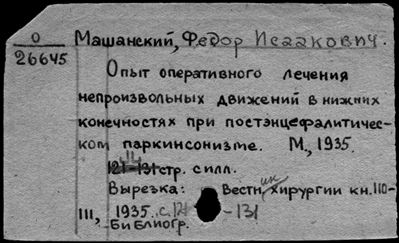 О
26645
Машанский, Федор Исаакович.
Опыт оперативного лечения
непроизвольных движений в нижних
конечностях при постэнцефалитичес-
ком паркинсонизме. М., 1935.
121-131 стр. с илл.
Вырезка: Вестн. хирургии кн. 110-
III, 1935. с. 121-131
-Библиогр.